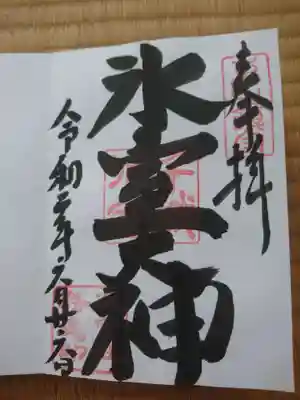 奉拝
氷室大神
令和二年六月廿六日